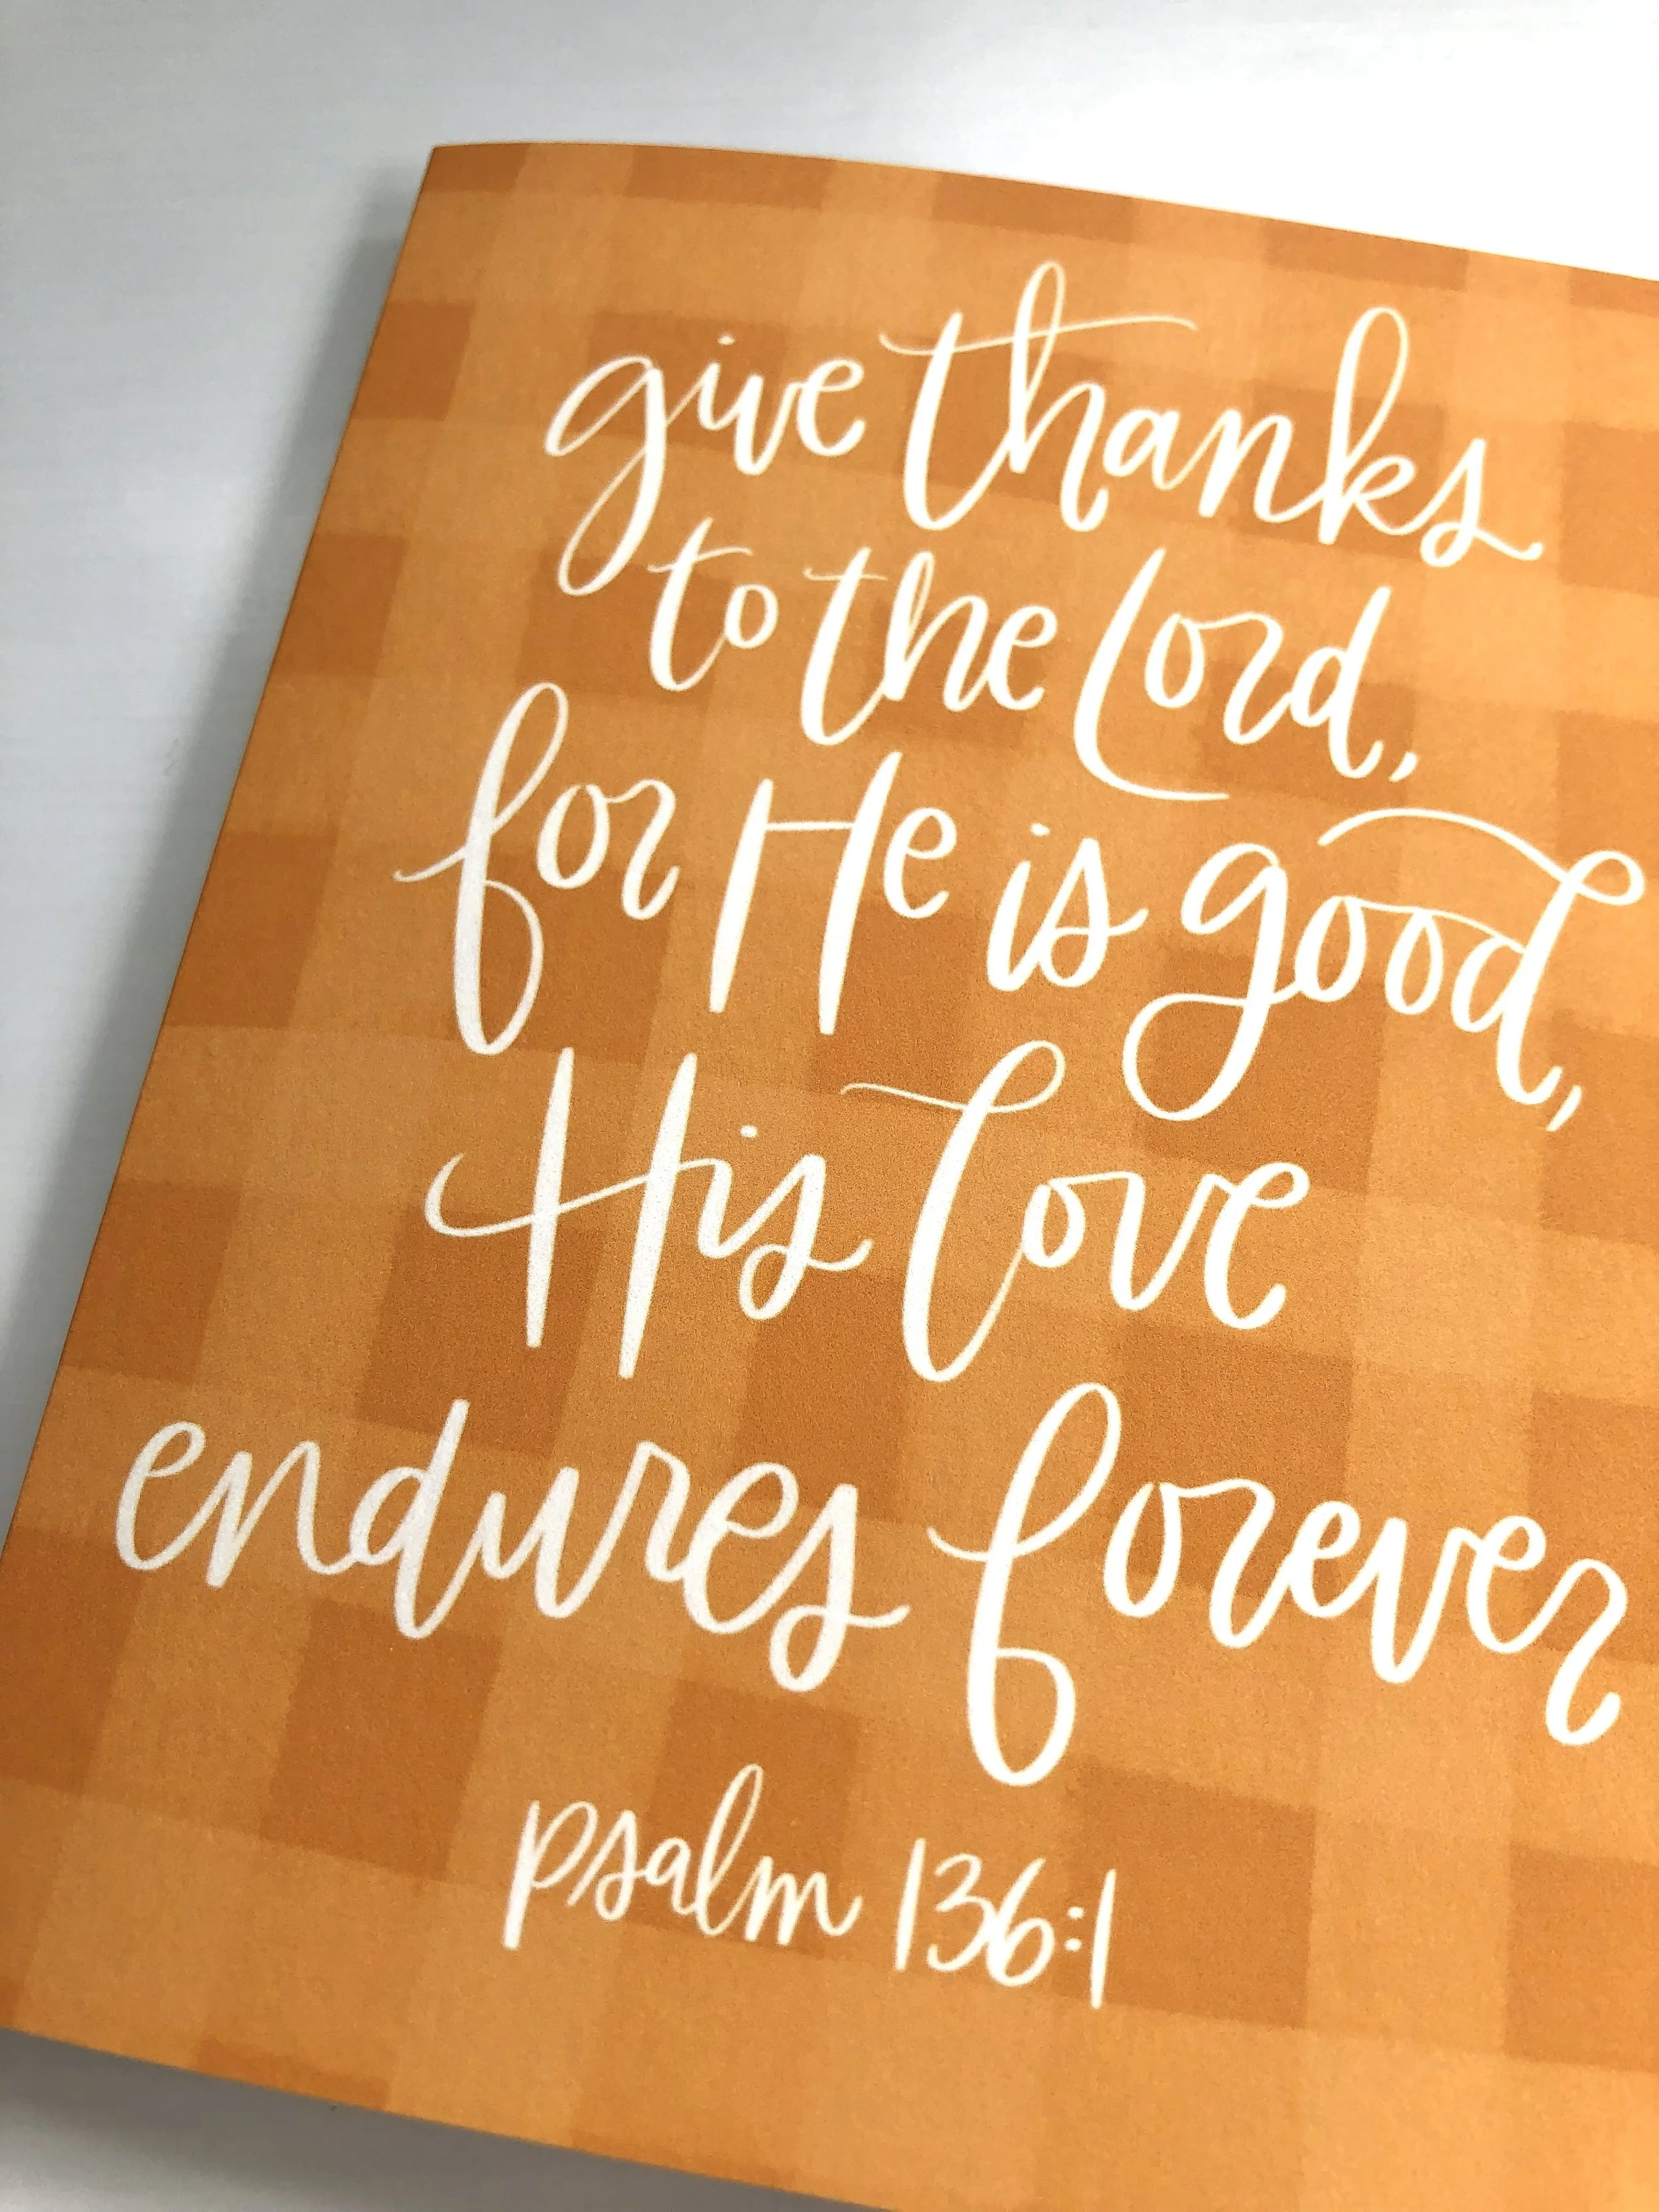 give thanks
to the Lord,
for He is good,
His love
endures forever
psalm 136:1